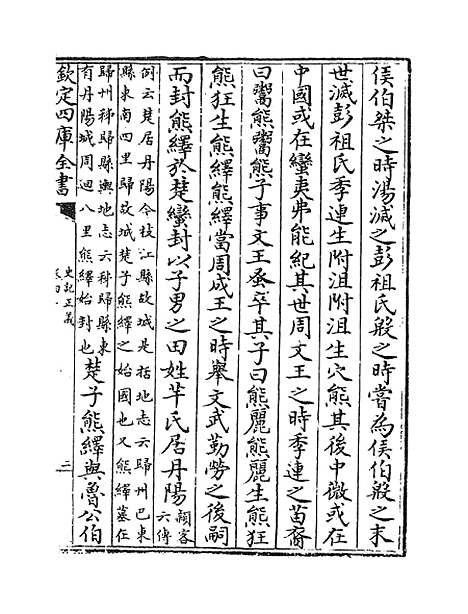 侯伯桀之時湯滅之彭祖氏殷之時嘗為侯伯殷之末
世滅彭祖氏季連生附沮附沮生穴熊其後中微或在
中國或在蠻夷弗能紀其世周文王之時季連之苗裔
曰鬻熊鬻熊子事文王蚤卒其子曰熊麗熊麗生熊狂
熊狂生熊繹熊繹當周成王之時舉文武勤勞之後嗣
而封熊繹於楚蠻封以子男之田姓芉氏居丹陽
潁客
六傳
例云楚居丹陽今枝江縣故城是括地志云歸州巴東
縣東南四里歸故城楚子熊繹之始國也又熊繹墓在
歸州秭歸縣輿地志云秭歸縣東
有丹陽城周迴八里熊繹始封也
楚子熊繹與魯公伯
欽定四庫全書
史記正義
卷四十
三